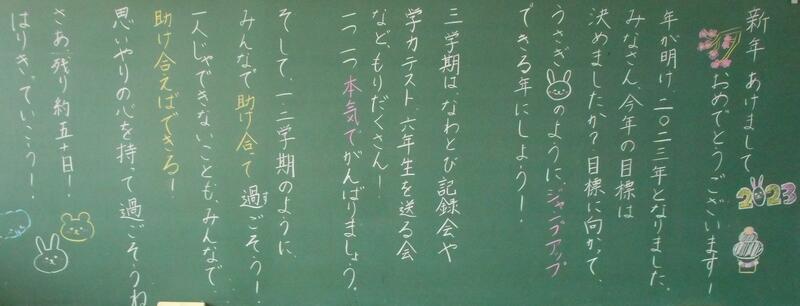 新年 あけまして
おめでとうございます!
2023
年が明け、二〇二三年となりました。
みなさん、今年の目標は
決めましたか?目標に向かって、
うさぎのように、ジャンプアップ
できる年にしよう!
三学期は なわとび記録会や
学力テスト 六年生を送る会
など、もりだくさん!
一つ一つ 本気でがんばりましょう。
そして、一、二学期のように、
みんなで 助け合って 過ごそう!
す
一人じゃできないことも、みんなで
助け合えばできる!
思いやりの心を持って 過ごそうね
さあ 残り 約五十日!
はりきっていこう!